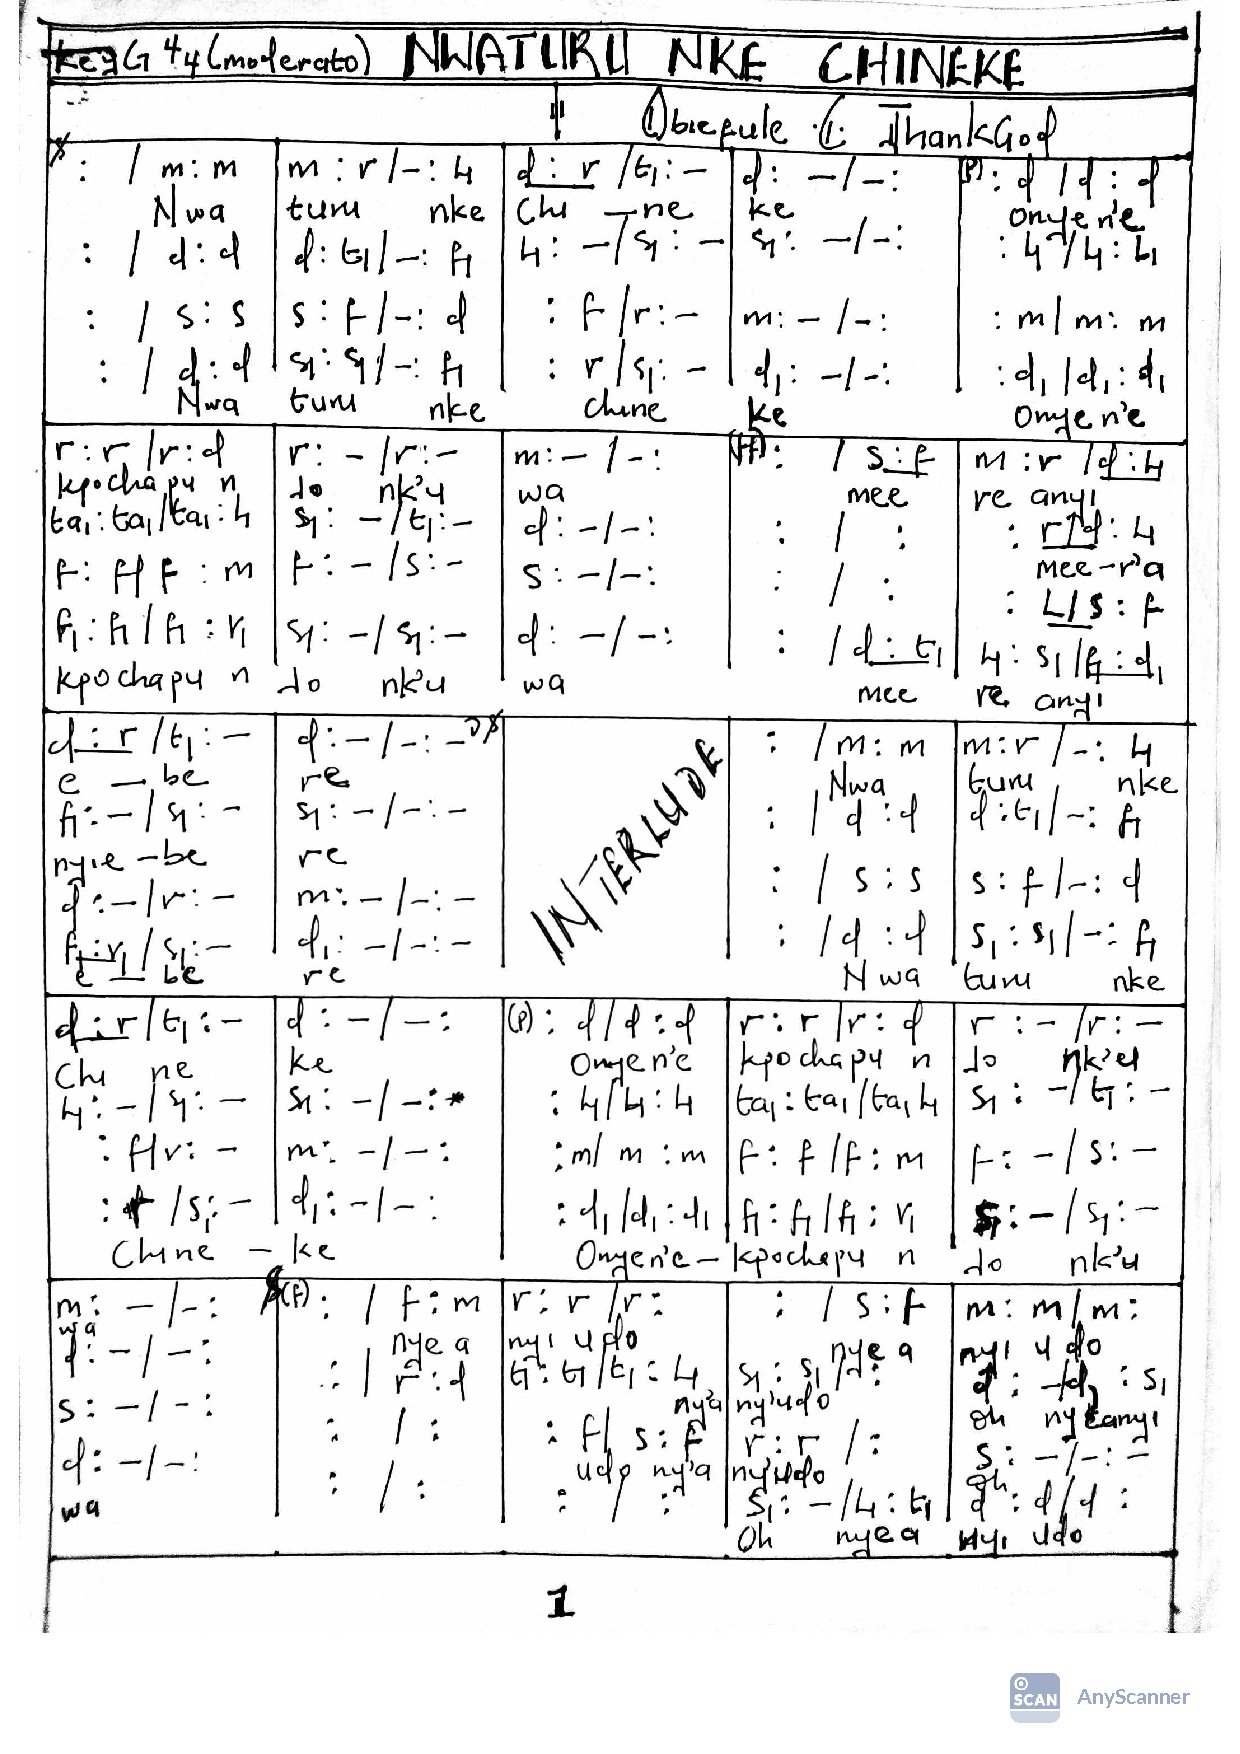 Key G 4/4 (moderato) NWATURU NKE CHINEKE
Obiefule C. ThankGod
: / m : m | m : r / - : l₁ | d : r / t₁ : - | d : - / - : | (P) : d / d : d
Nwa turu nke Chi - ne ke Onye n'e
: / d : d | d : t₁ / - : f₁ | l₁ : - / s₁ : - | s₁ : - / - : | : l₁ / l₁ : l₁
: / s : s | s : f / - : d | : f / r : - | m : - / - : | : m / m : m
: / d : d | s₁ : s₁ / - : f₁ | : r / s₁ : - | d₁ : - / - : | : d₁ / d₁ : d₁
Nwa turu nke chine ke Onye n'e
r : r / r : d | r : - / r : - | m : - / - : | (ff) : / s : f | m : r / d : l₁
kpochapu n jo nk'u wa mee re anyi
ta₁ : ta₁ / ta₁ : l₁ | s₁ : - / t₁ : - | d : - / - : | : / : | : r / d : l₁
mee - r'a
f : f / f : m | f : - / s : - | s : - / - : | : / : | : l / s : f
f₁ : f₁ / f₁ : r₁ | s₁ : - / s₁ : - | d : - / - : | : / d : t₁ | l₁ : s₁ / f₁ : d₁
kpochapu n jo nk'u wa mee re anyi
d : r / t₁ : - | d : - / - : - | INTERLUDE | : / m : m | m : r / - : l₁
e - be re Nwa turu nke
f₁ : - / s₁ : - | s₁ : - / - : - | : / d : d | d : t₁ / - : f₁
nyie - be re
d : - / r : - | m : - / - : - | : / s : s | s : f / - : d
f₁ : r₁ / s₁ : - | d₁ : - / - : - | : / d : d | s₁ : s₁ / - : f₁
e - be re Nwa turu nke
d : r / t₁ : - | d : - / - : | (P) : d / d : d | r : r / r : d | r : - / r : -
Chi ne ke Onye n'e kpochapu n jo nk'u
l₁ : - / s₁ : - | s₁ : - / - : | : l₁ / l₁ : l₁ | ta₁ : ta₁ / ta₁ l₁ | s₁ : - / t₁ : -
: f / r : - | m : - / - : | : m / m : m | f : f / f : m | f : - / s : -
: / s₁ : - | d₁ : - / - : | : d₁ / d₁ : d₁ | f₁ : f₁ / f₁ : r₁ | s₁ : - / s₁ : -
Chine - ke Onye n'e - kpochapu n jo nk'u
m : - / - : | (f) : / f : m | r : r / r : | : / s : f | m : m / m :
wa nye a nyi udo nye a nyi udo
d : - / - : | : / r : d | t₁ : t₁ / t₁ : l₁ | s₁ : s₁ / : | d : - / d : s₁
ny'a ny'udo oh nyeanyi
s : - / - : | : / : | : f / s : f | r : r / : | s : - / - : -
udo ny'a ny'udo oh
d : - / - : | : / : | : / : | s₁ : - / l₁ : t₁ | d : d / d :
wa Oh nye a nyi udo
1
SCAN AnyScanner